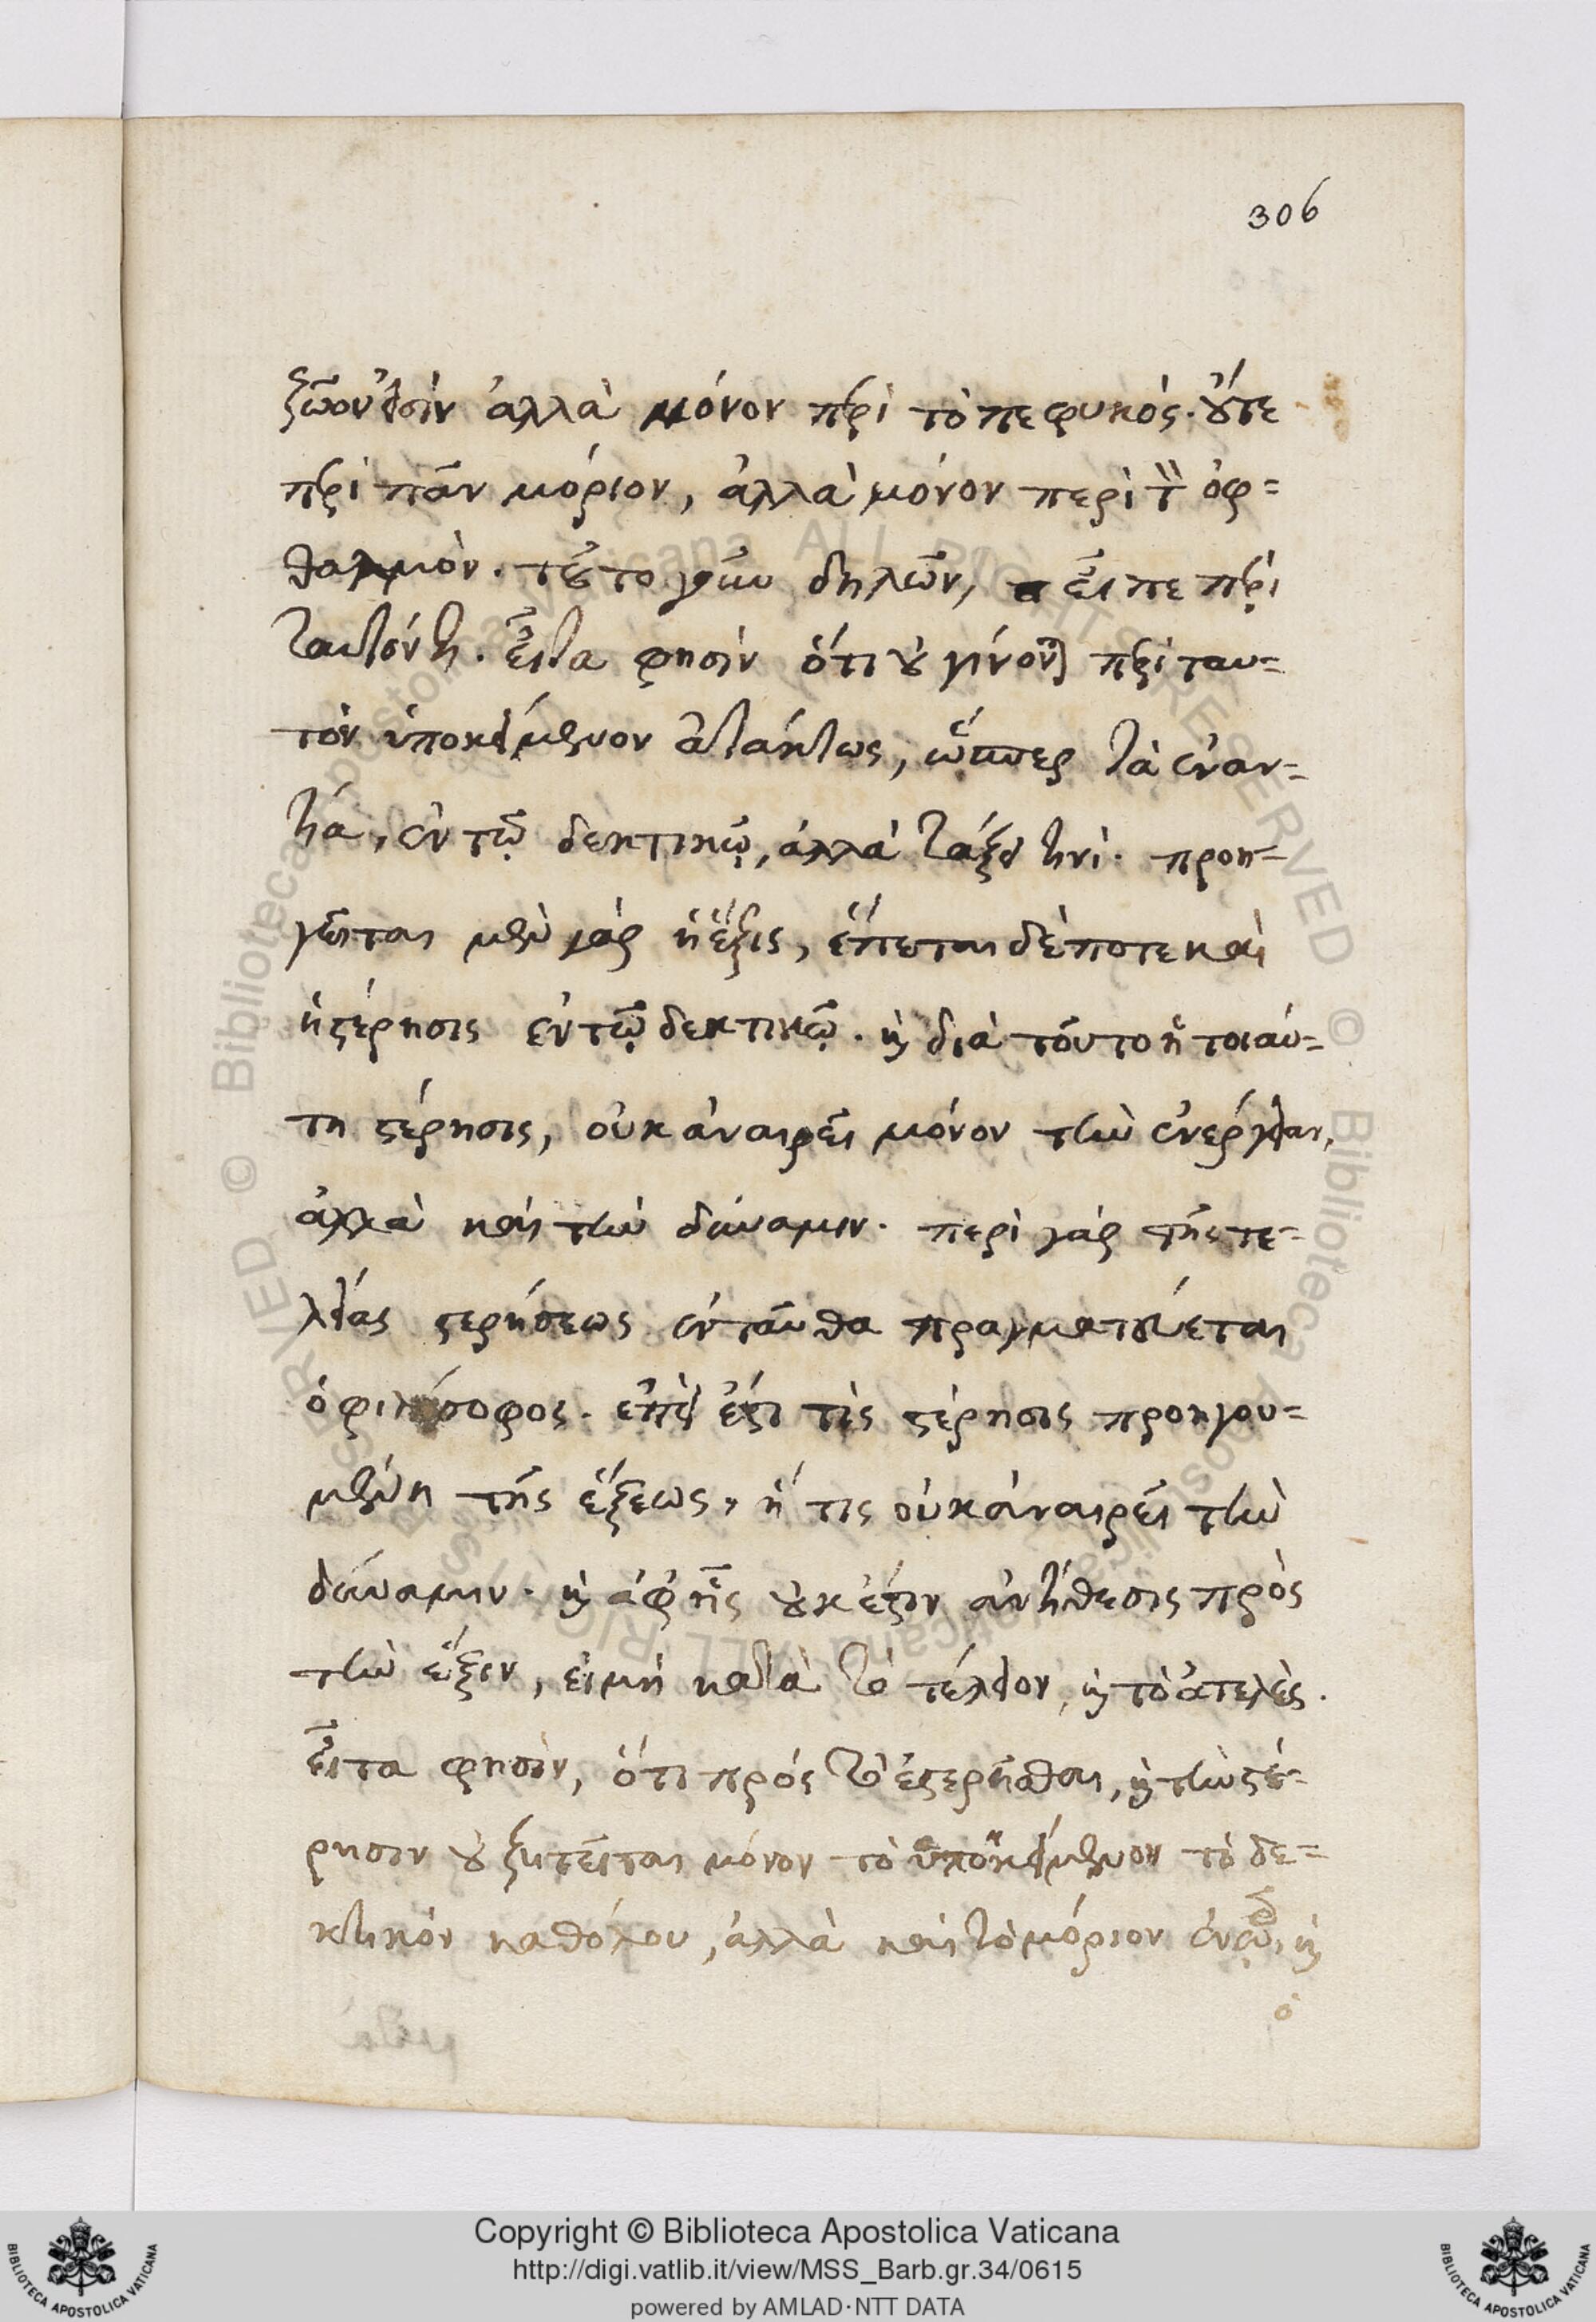 306
ζῶον εἰσὶν ἀλλὰ μόνον περὶ τὸ πεφυκός. οὔτε
περὶ πᾶν μόριον, ἀλλὰ μόνον περὶ τὸν ὀφ=
θαλμὸν. τοῦτο γοῦν δηλῶν, εἶπε περὶ
ταυτόν τι. εἶτα φησὶν ὅτι οὐ γίνονται περὶ ταυ=
τὸν ὑποκείμενον ἀτάκτως, ὥσπερ τὰ ἐναν=
τία, ἐν τῷ δεκτικῷ, ἀλλὰ τάξει τινὶ. προη=
γεῖται μὲν γὰρ ἡ ἕξις, ἕπεται δέ ποτε καὶ
ἡ στέρησις ἐν τῷ δεκτικῷ. καὶ διὰ τοῦτο ἡ τοιαύ=
τη στέρησις, οὐκ ἀναιρεῖ μόνον τὴν ἐνέργειαν,
ἀλλὰ καὶ τὴν δύναμιν. περὶ γὰρ τῆς τε=
λείας στερήσεως ἐνταῦθα πραγματεύεται
ὁ φιλόσοφος. ἐπεὶ ἔστι τὶς στέρησις προηγου=
μένη τῆς ἕξεως, ἥ τις οὐκ ἀναιρεῖ τὴν
δύναμιν. καὶ ἀφ' ἧς οὐκ ἔστιν ἀντίθεσις πρὸς
τὴν ἕξιν, εἰ μὴ κατὰ τὸ τέλειον, καὶ τὸ ἀτελὲς.
εἶτα φησὶν, ὅτι πρὸς τὸ ἐστερῆσθαι, καὶ τὴν στέ=
ρησιν οὐ ζητεῖται μόνον τὸ ὑποκείμενον τὸ δε=
κτικὸν καθόλου, ἀλλὰ καὶ τὸ μόριον ἐν ᾧ, καὶ
ὁ
Copyright © Biblioteca Apostolica Vaticana
http://digi.vatlib.it/view/MSS_Barb.gr.34/0615
powered by AMLAD·NTT DATA